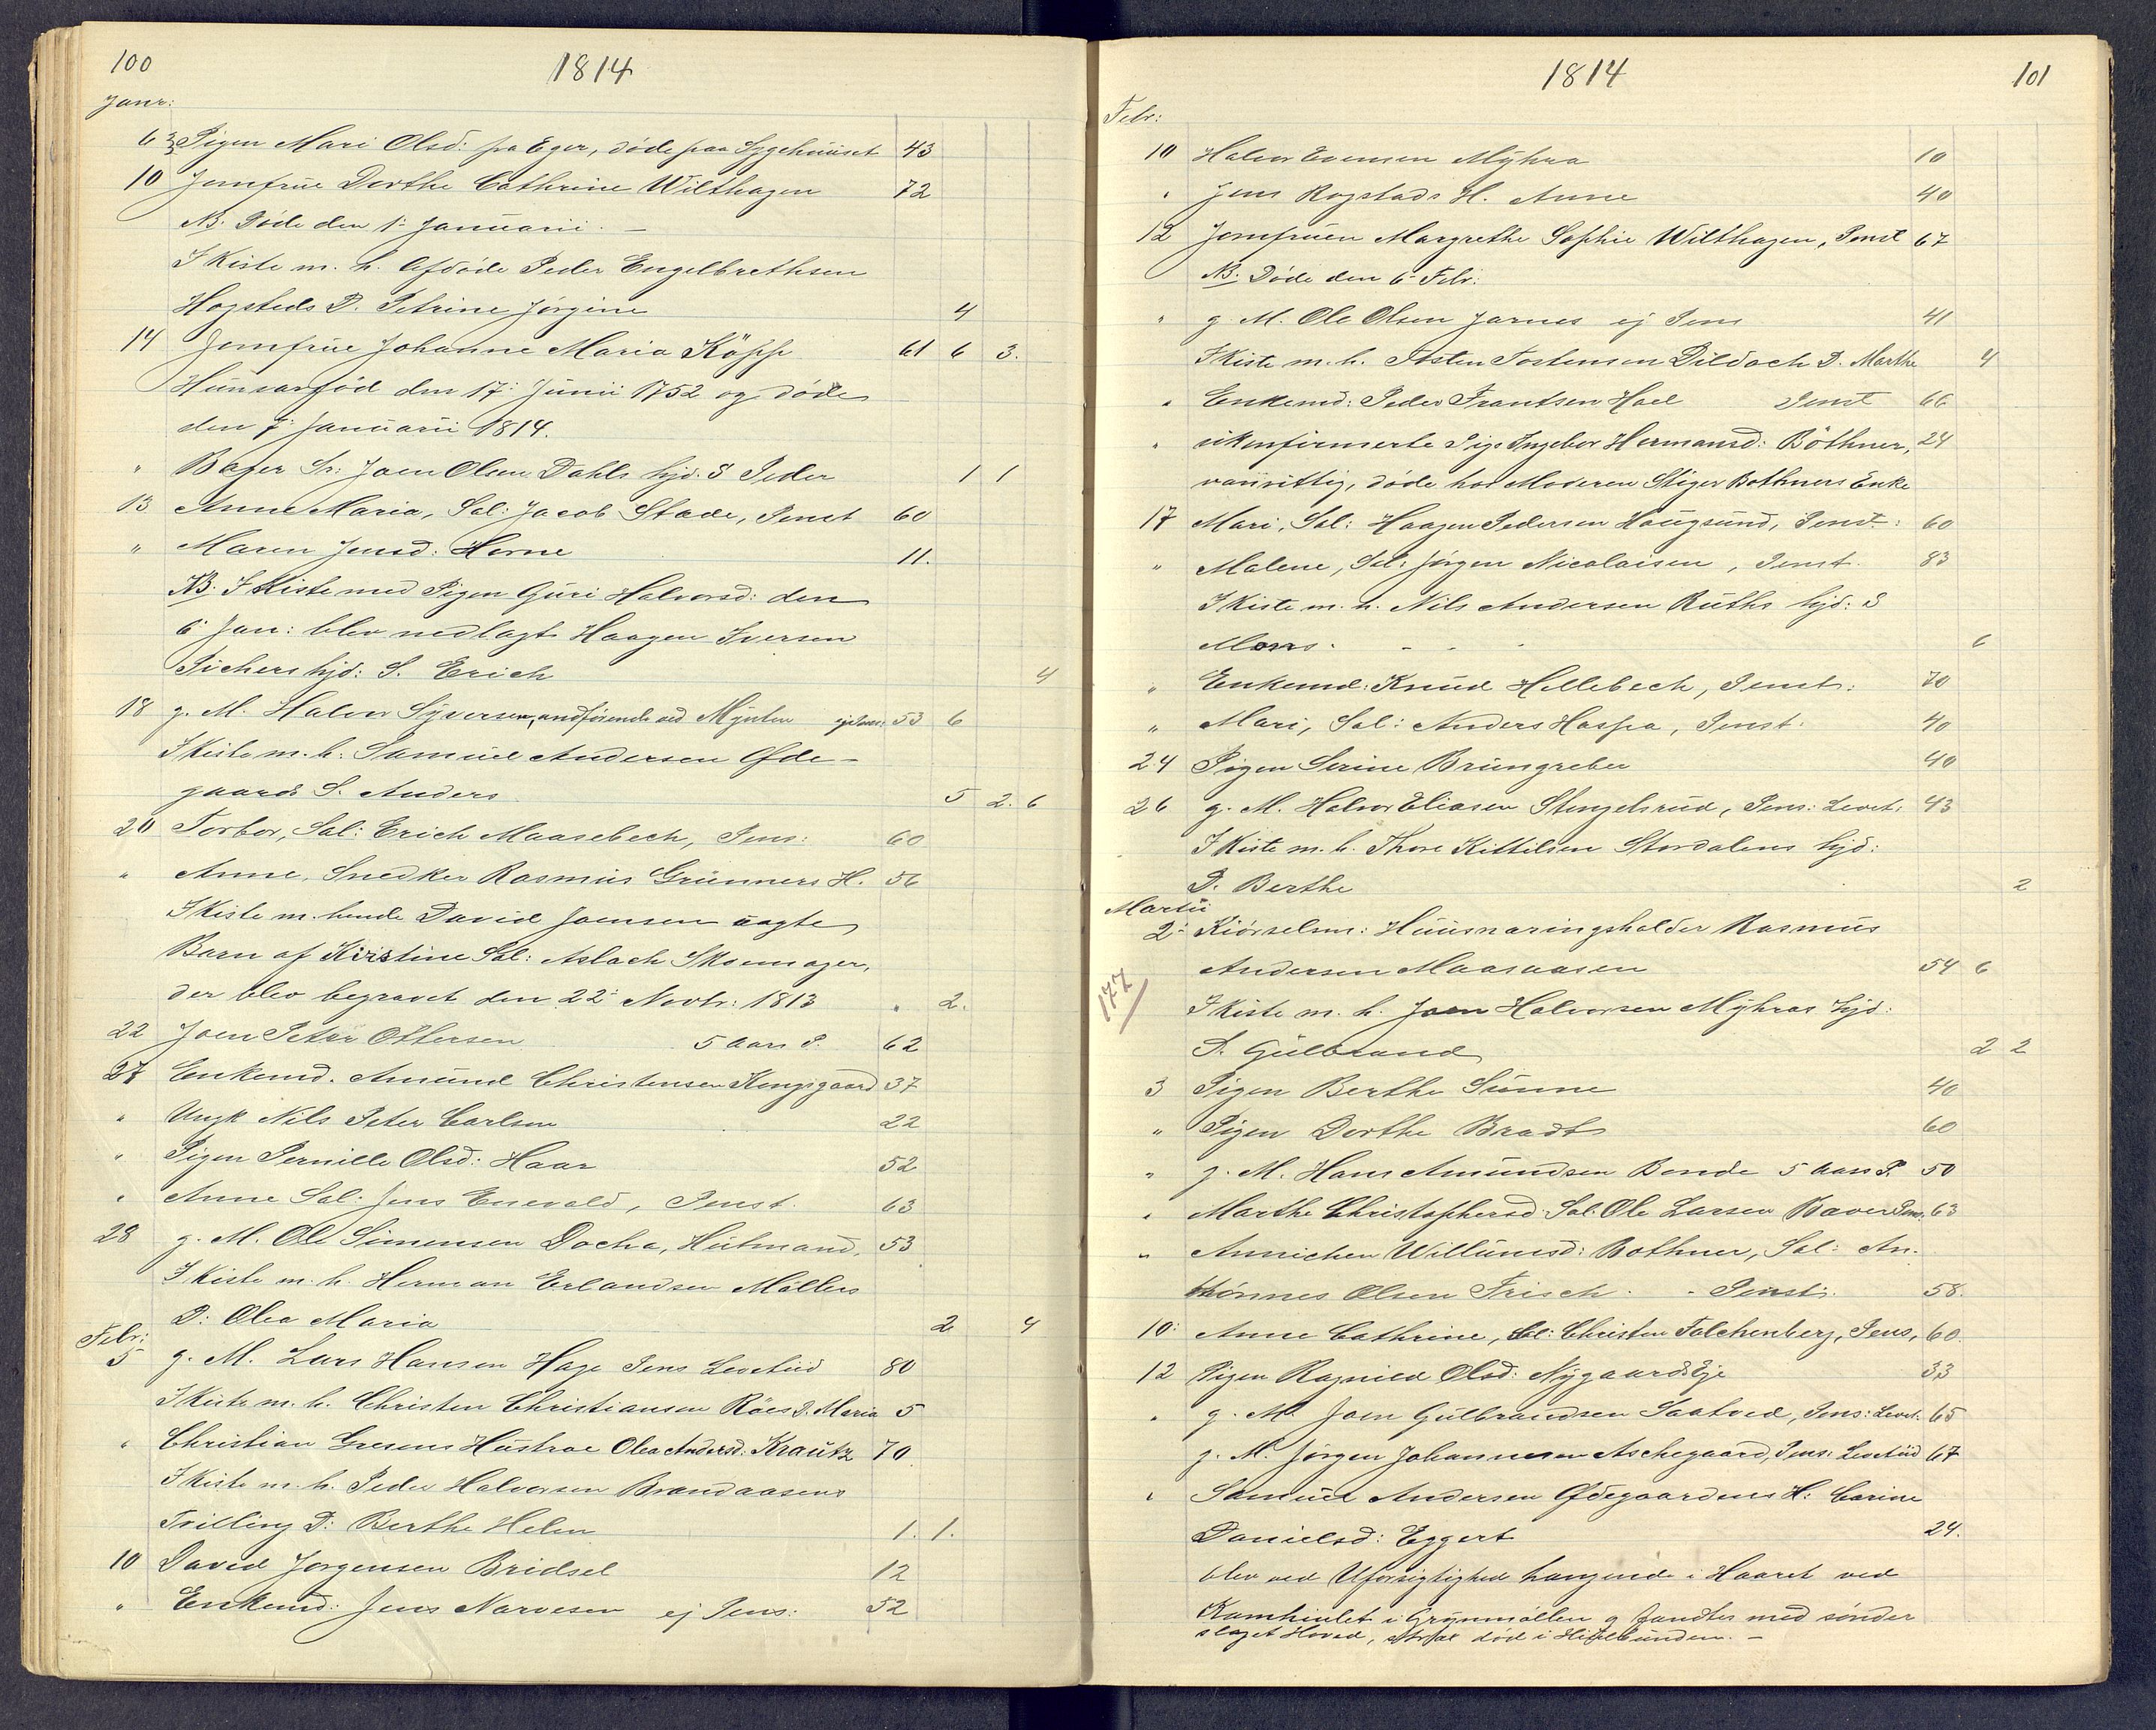 100
1814
Janr:
6 Pigen Mari Olsd: fra Eger, døde paa Sygehuuset 43
10 Jomfrue Dorthe Cathrine Wilthagen 72
NB. Døde den 1: Januarii. –
I Kiste m. h. Afdøde Peder Engelbrethsen
Hogsteds D. Petrine Jørgine 4
14 Jomfrue Johanne Maria Köpp 61 6 3.
Hun var fød den 17: Junii 1752 og døde
den 7: Januarii 1814.
" Bager Sr: Joen Olsen Dahls hjd. S Peder 1 1
13 Anne Maria, Sal: Jacob Stade, Penst 60
" Maren Jensd: Horne 11.
NB. I Kiste med Pigen Guri Halvorsd: den
6: Jan: blev nedlagt Haagen Iversen
Pichers hjd: S. Erich 4
18 g. M. Halvor Syversen, ved Mynten ej Pens: 53 6
I Kiste m. h: Samuel Andersen Øde-
gaards S. Anders 5 2. 6
20 Torbor, Sal: Erich Maasebech, Pens: 60
" Anne, Snedker Rasmus Grünners H. 56
I Kiste m. hende David Joensen uægte
Barn af Kirstine Sal: Aslach Skoemager,
der blev begravet den 22: Novbr: 1813 2.
22 Joen Peter Ottersen 5 Aars P. 62
27 Enkemd. Amund Christensen Kongsgaard 37
" Ungk Nils Peter Carlsen 22
" Pigen Pernille Olsd: Haar 52
" Anne Sal: Jens Enevald, Penst. 63
28 g. M. Ole Simensen Docka, Hütmand, 53
I Kiste m. h. Herman Erlandsen Møllers
D: Olea Maria 2 4
Febr:
5 g. M. Lars Hansen Hage Pens Levetiid 80
I Kiste m. h. Christen Christiansen Röes D. Maria 5
" Christian Gresens Hustroe Olea Andersd: Krautz 70
I Kiste m. h. Peder Halvorsen Brandaasens
Tvilling D: Berthe Helen 1. 1.
10 David Jørgensen Bridsel 12
" Enkemd: Jens Narvesen ej Pens: 52
1814
101
Febr:
10 Halvor Evensen Myhra 10
" Jens Rogstads H. Anne 40
12 Jomfruen Margrethe Sophie Wilthagen, Penst 67
NB. Døde den 6: Febr.
" g. M. Ole Olsen Jarnes ej Pens 41
I Kiste m. h. Torstensen D. Marthe 4
" Enkemd: Peder Frantsen Hoel Penst 66
" ukonfirmerte Pige Ingebor Hermansd: Böthner, 24
vanvittig, døde hos Moderen Stiger Bothners Enke
17 Mari, Sal: Haagen Pedersen Haugsund, Penst: 60
" Malene, Sal: Jørgen Nicolaisen, Penst. 83
I Kiste m. h. Nils Andersen Ruths hjd: S
Mons. - - - 6
" Enkemd: Knud Hellebech, Penst: 70
" Mari, Sal: Anders Haspa, Penst: 40
24 Pigen Serine Brüngreber 40
26 g. M. Halvor Eliasen Stengelsrud, Pens: Levet: 43
I Kiste m. h. Thore Kittilsen Stordalens hjd:
D. Berthe 2
Martii
2: Kiörselsm: Huusnæringsholder Rasmus
Andersen Maasaasen 54 6
177
I Kiste m. h. Joen Halvorsen Myhras hjd:
S. Gulbrand 2 2
3 Pigen Berthe Sunne 40
" Pigen Dorthe Bradt 60
" g. M. Hans Amundsen Bonde 5 Aars P. 50
" Marthe Christophersd. Sal. Ole Larsen Baver Pens. 63
" Annichen Willumsd: Bothner, Sal: An-
thönnes Olsen Frisch. - Penst: 58.
10: Anne Cathrine, Sal: Christen Falchenberg, Pens, 60.
12 Pigen Ragnild Olsd: Nygaards Eje 33
" g. M. Joen Gulbrandsen Saatved, Pens: Levet. 65
g. M. Jørgen Johannesen Aschegaard, Pens: Levetiid 67
" Samuel Andersen Ødegaardens H: Carine
Danielsd: Eggert 24.
blev ved Uforsigtighed hængende i Haaret ved
Kamhiulet i Grynmøllen og fandtes med sønder
slaget Hoved, død i Hiulbunden. –